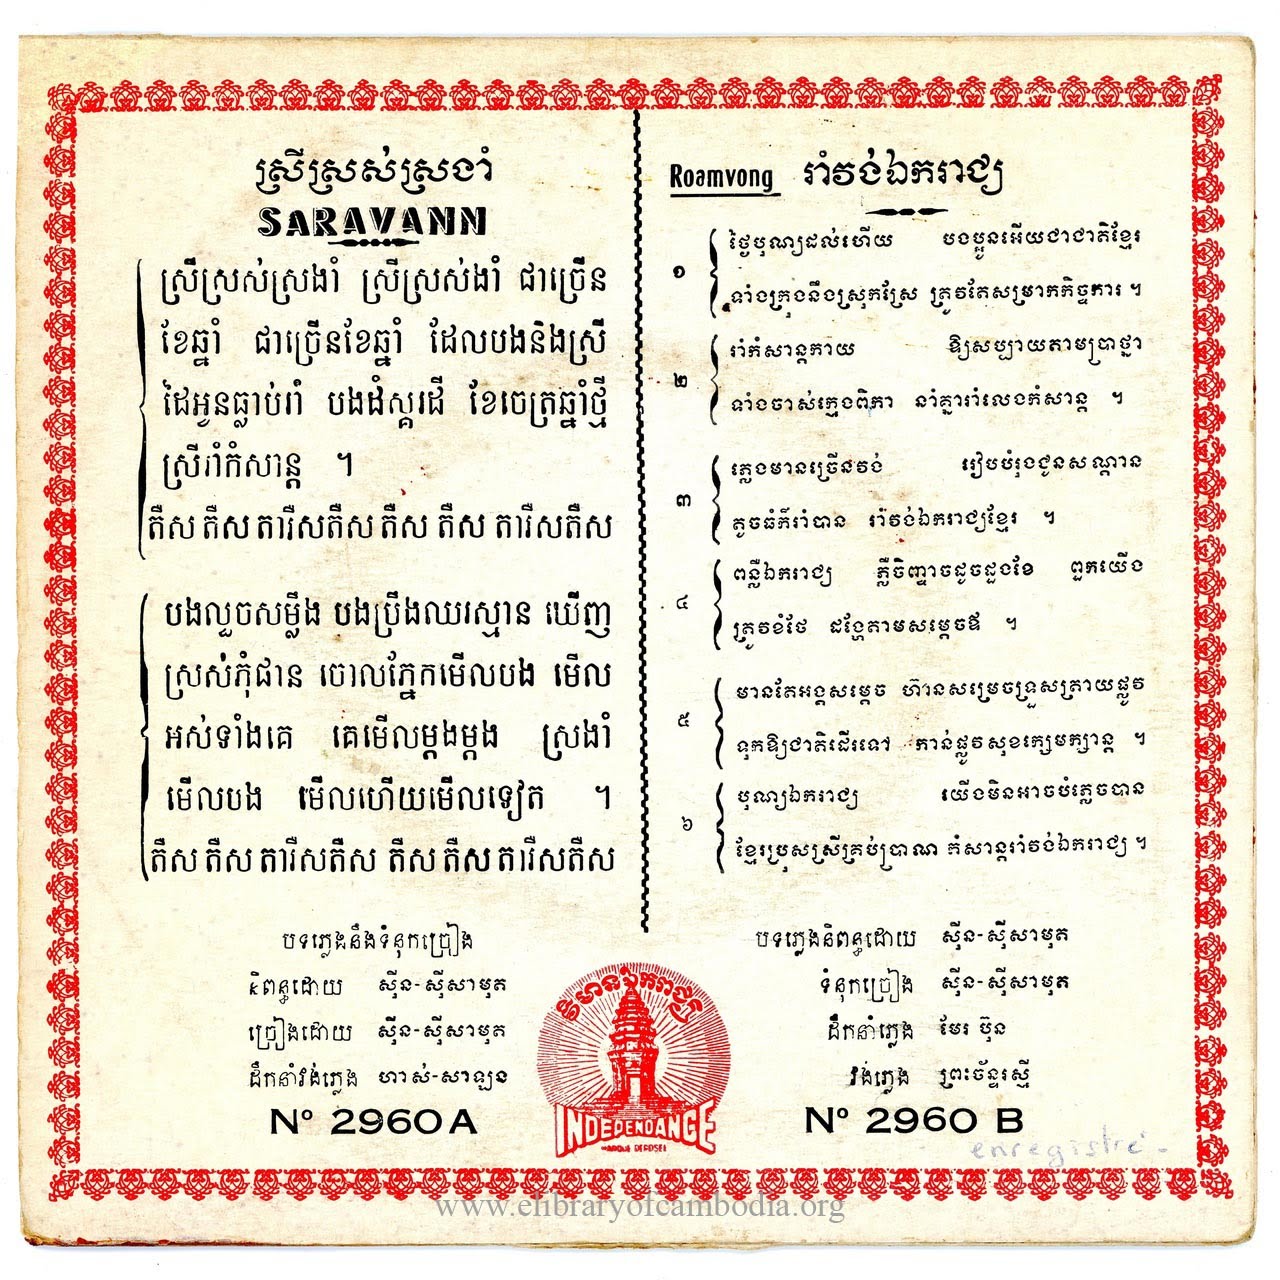 ស្រីស្រស់ស្រងាំ
SARAVANN
ស្រីស្រស់ស្រងាំ ស្រីស្រស់ងាំ ជាច្រើន
ខែឆ្នាំ ជាច្រើនខែឆ្នាំ ដែលបងនិងស្រី
ដៃអូនធ្លាប់រាំ បងដំស្គរដី ខែចេត្រឆ្នាំថ្មី
ស្រីរាំកំសាន្ត ។
តឺស តឺស តារ៉ឺសតឺស តឺស តឺស តារ៉ឺសតឺស
បងលួចសម្លឹង បងប្រឹងឈរស្មាន ឃើញ
ស្រស់ភុំផាន ចោលភ្នែកមើលបង មើល
អស់ទាំងគេ គេមើលម្តងម្តង ស្រងាំ
មើលបង មើលហើយមើលទៀត ។
តឺស តឺស តារ៉ឺសតឺស តឺស តឺស តារ៉ឺសតឺស
បទភ្លេងនឹងទំនុកច្រៀង
និពន្ធដោយ ស៊ីន-ស៊ីសាមុត
ច្រៀងដោយ ស៊ីន-ស៊ីសាមុត
ដឹកនាំវង់ភ្លេង ហាស់-សាឡន
Nº 2960 A
Roamvong រាំវង់ឯករាជ្យ
១
ថ្ងៃបុណ្យដល់ហើយ បងប្អូនអើយជាជាតិខ្មែរ
ទាំងក្រុងនឹងស្រុកស្រែ ត្រូវតែសម្រាកកិច្ចការ ។
២
រាំកំសាន្តកាយ ឱ្យសប្បាយតាមប្រាថ្នា
ទាំងចាស់ក្មេងពិភា នាំគ្នារាំលេងកំសាន្ត ។
៣
ភ្លេងមានច្រើនវង់ រៀបបំរុងជូនសណ្តាន
តូចធំក៏រាំបាន រាំវង់ឯករាជ្យខ្មែរ ។
៤
ពន្លឺឯករាជ្យ ភ្លឺចិញ្ចាចដូចដួងខែ ពួកយើង
ត្រូវខំថែ ដង្ហែតាមសម្តេចឪ ។
៥
មានតែអង្គសម្តេច ហ៊ានសម្រេចទ្រួសត្រាយផ្លូវ
ទុកឱ្យជាតិដើរទៅ កាន់ផ្លូវសុខក្សេមក្សាន្ត ។
៦
បុណ្យឯករាជ្យ យើងមិនអាចបំភ្លេចបាន
ខ្មែរប្រុសស្រីគ្រប់ប្រាណ កំសាន្តរាំវង់ឯករាជ្យ ។
បទភ្លេងនិពន្ធដោយ ស៊ីន-ស៊ីសាមុត
ទំនុកច្រៀង ស៊ីន-ស៊ីសាមុត
ដឹកនាំភ្លេង មែរ ប៊ុន
វង់ភ្លេង ព្រះច័ន្ទរស្មី
Nº 2960 B
វិមានឯករាជ្យ
INDEPENDANCE
MARQUE DEPOSEE
enregistré.
www.elibraryofcambodia.org